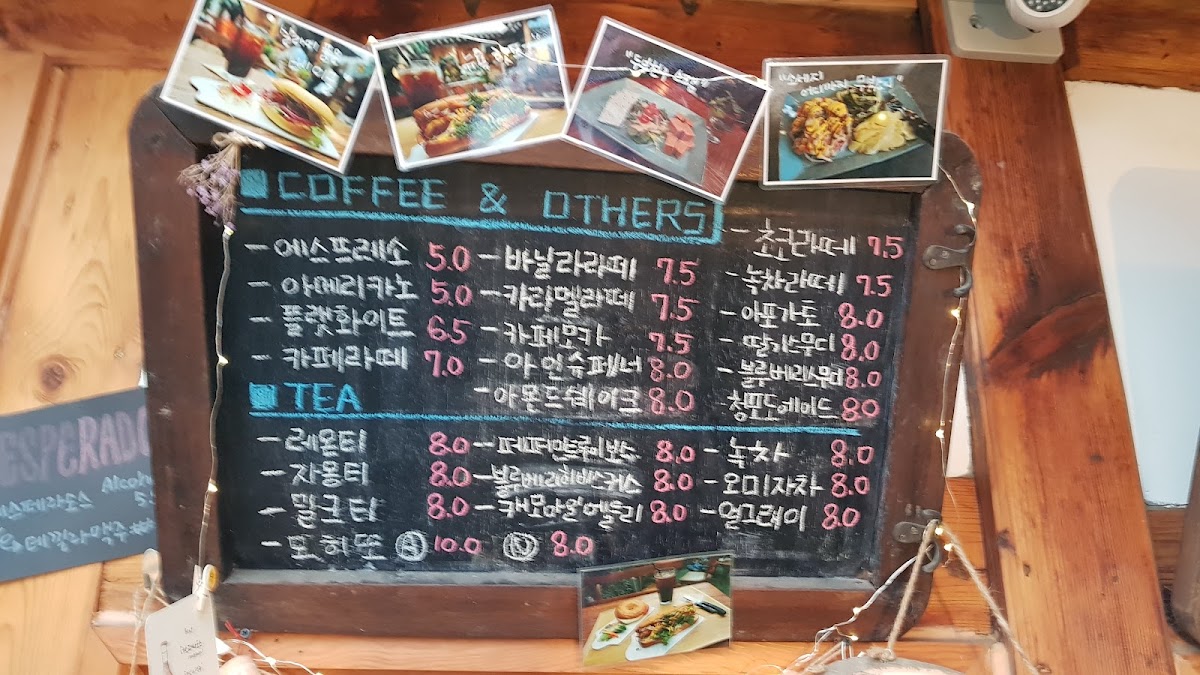 "소세지
■ COFFEE & OTHERS
- 에스프레소 5.0
- 아메리카노 5.0
- 플랫화이트 6.5
- 카페라떼 7.0
- 바닐라라떼 7.5
- 카라멜라떼 7.5
- 카페모카 7.5
- 아인슈페너 8.0
- 아몬드쉐이크 8.0
- 초코라떼 7.5
- 녹차라떼 7.5
- 아포가토 8.0
- 딸기스무디 8.0
- 블루베리스무디 8.0
청포도에이드 8.0
■ TEA
- 레몬티 8.0
- 자몽티 8.0
- 밀크티 8.0
- 모히또 Ⓐ 10.0 Ⓝ 8.0
- 페퍼민트루이보스 8.0
- 블루베리히비스커스 8.0
- 캐모마일메들리 8.0
- 녹차 8.0
- 오미자차 8.0
- 얼그레이 8.0
ESPERADO
스페라도스 Alcoho
데낄라맥주